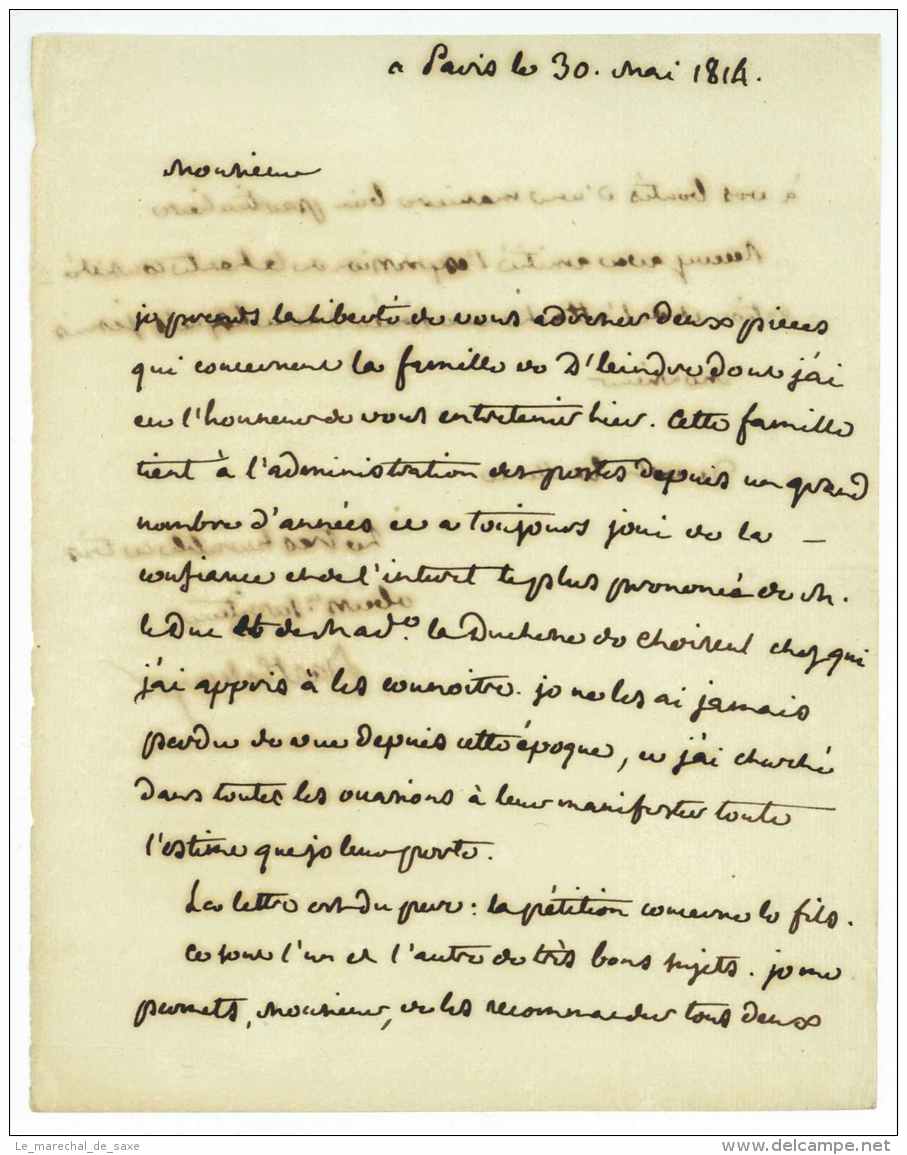 a Paris le 30. Mai 1814.
Monsieur
je prends la liberté de vous adresser deux pieces
qui concernent la famille de D'leindre dont j'ai
eu l'honneur de vous entretenir hier. Cette famille
tient à l'administration des postes depuis un grand
nombre d'années et a toujours joui de la _
confiance et de l'interet le plus prononcé de M.
le Duc et de Made. la Duchesse de Choiseul chez qui
j'ai appris à les connoitre. je ne les ai jamais
perdu de vue depuis cette époque, et j'ai cherché
dans toutes les occasions à leur manifester toute
l'estime que je leur porte.
La lettre est du pere : la pétition concerne le fils.
Ce sont l'un et l'autre de très bons sujets. je me
permets, Monsieur, de les recommander tous deux
Le_marechal_de_saxe
www.delcampe.net